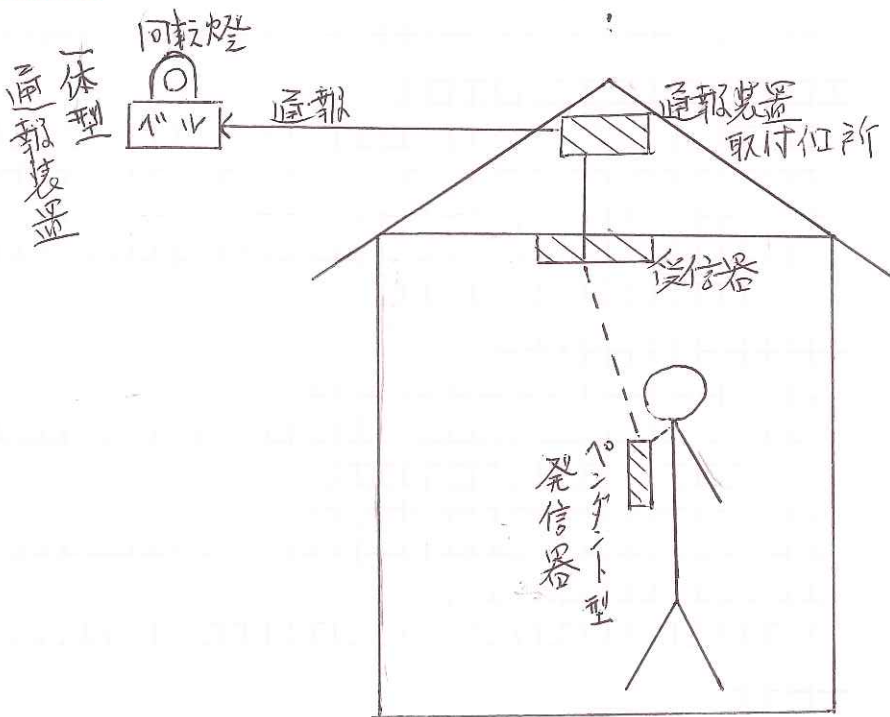 回転燈
一体型
通報装置
ベル
通報
通報装置
取付位所
受信器
ペンダント型
発信器